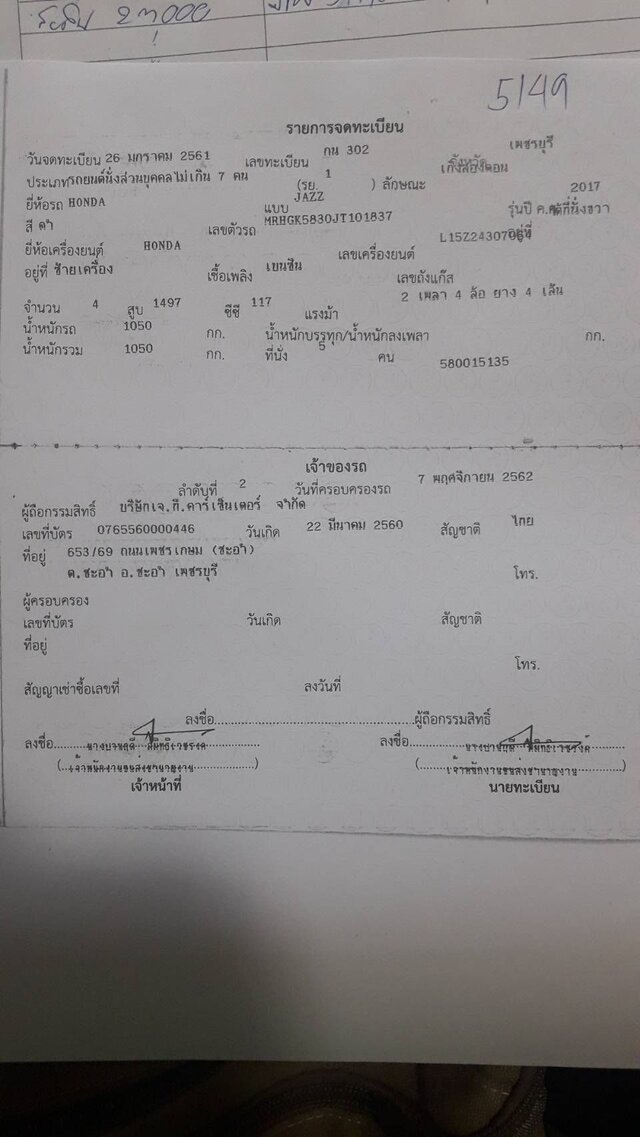 23,000
5149
รายการจดทะเบียน
วันจดทะเบียน 26 มกราคม 2561 เลขทะเบียน กน 302 เพชรบุรี
ประเภทรถยนต์นั่งส่วนบุคคลไม่เกิน 7 คน (รย. 1 ) ลักษณะ เก๋งสองตอน
ยี่ห้อรถ HONDA แบบ JAZZ รุ่นปี ค.ศ. 2017
สี ดำ เลขตัวรถ MRHGK5830JT101837 อยู่ที่ ใต้ที่นั่งขวา
ยี่ห้อเครื่องยนต์ HONDA เลขเครื่องยนต์ L15Z24307064
อยู่ที่ ซ้ายเครื่อง เชื้อเพลิง เบนซิน เลขถังแก๊ส
จำนวน 4 สูบ 1497 ซีซี 117 แรงม้า 2 เพลา 4 ล้อ ยาง 4 เส้น
น้ำหนักรถ 1050 กก. น้ำหนักบรรทุก/น้ำหนักลงเพลา กก.
น้ำหนักรวม 1050 กก. ที่นั่ง 5 คน 580015135
เจ้าของรถ
ลำดับที่ 2 วันที่ครอบครองรถ 7 พฤศจิกายน 2562
ผู้ถือกรรมสิทธิ์ บริษัทเจ.ที.คาร์เซ็นเตอร์ จำกัด
เลขที่บัตร 0765560000446 วันเกิด 22 มีนาคม 2560 สัญชาติ ไทย
ที่อยู่ 653/69 ถนนเพชรเกษม (ชะอำ)
ต.ชะอำ อ.ชะอำ เพชรบุรี โทร.
ผู้ครอบครอง
เลขที่บัตร วันเกิด สัญชาติ
ที่อยู่
โทร.
สัญญาเช่าซื้อเลขที่ ลงวันที่
ลงชื่อ ผู้ถือกรรมสิทธิ์
ลงชื่อ ลงชื่อ
(เจ้าพนักงานขนส่งชำนาญงาน) (เจ้าพนักงานขนส่งชำนาญงาน)
เจ้าหน้าที่ นายทะเบียน